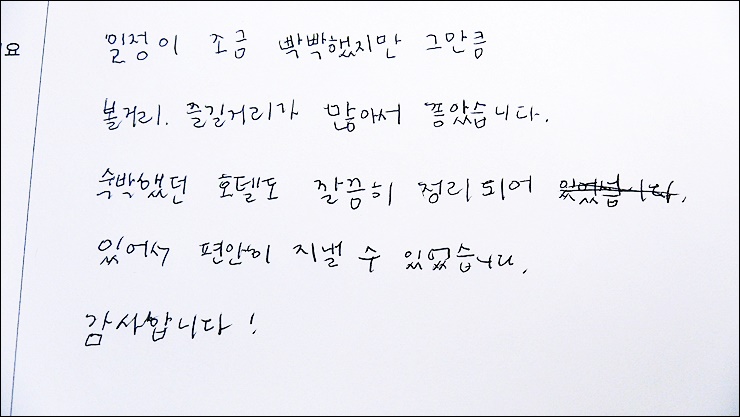 요
일정이 조금 빡빡했지만 그만큼
볼거리. 즐길거리가 많아서 좋았습니다.
숙박했던 호텔도 깔끔히 정리되어 있었습니다.
있어서 편안히 지낼 수 있었습니다.
감사합니다!